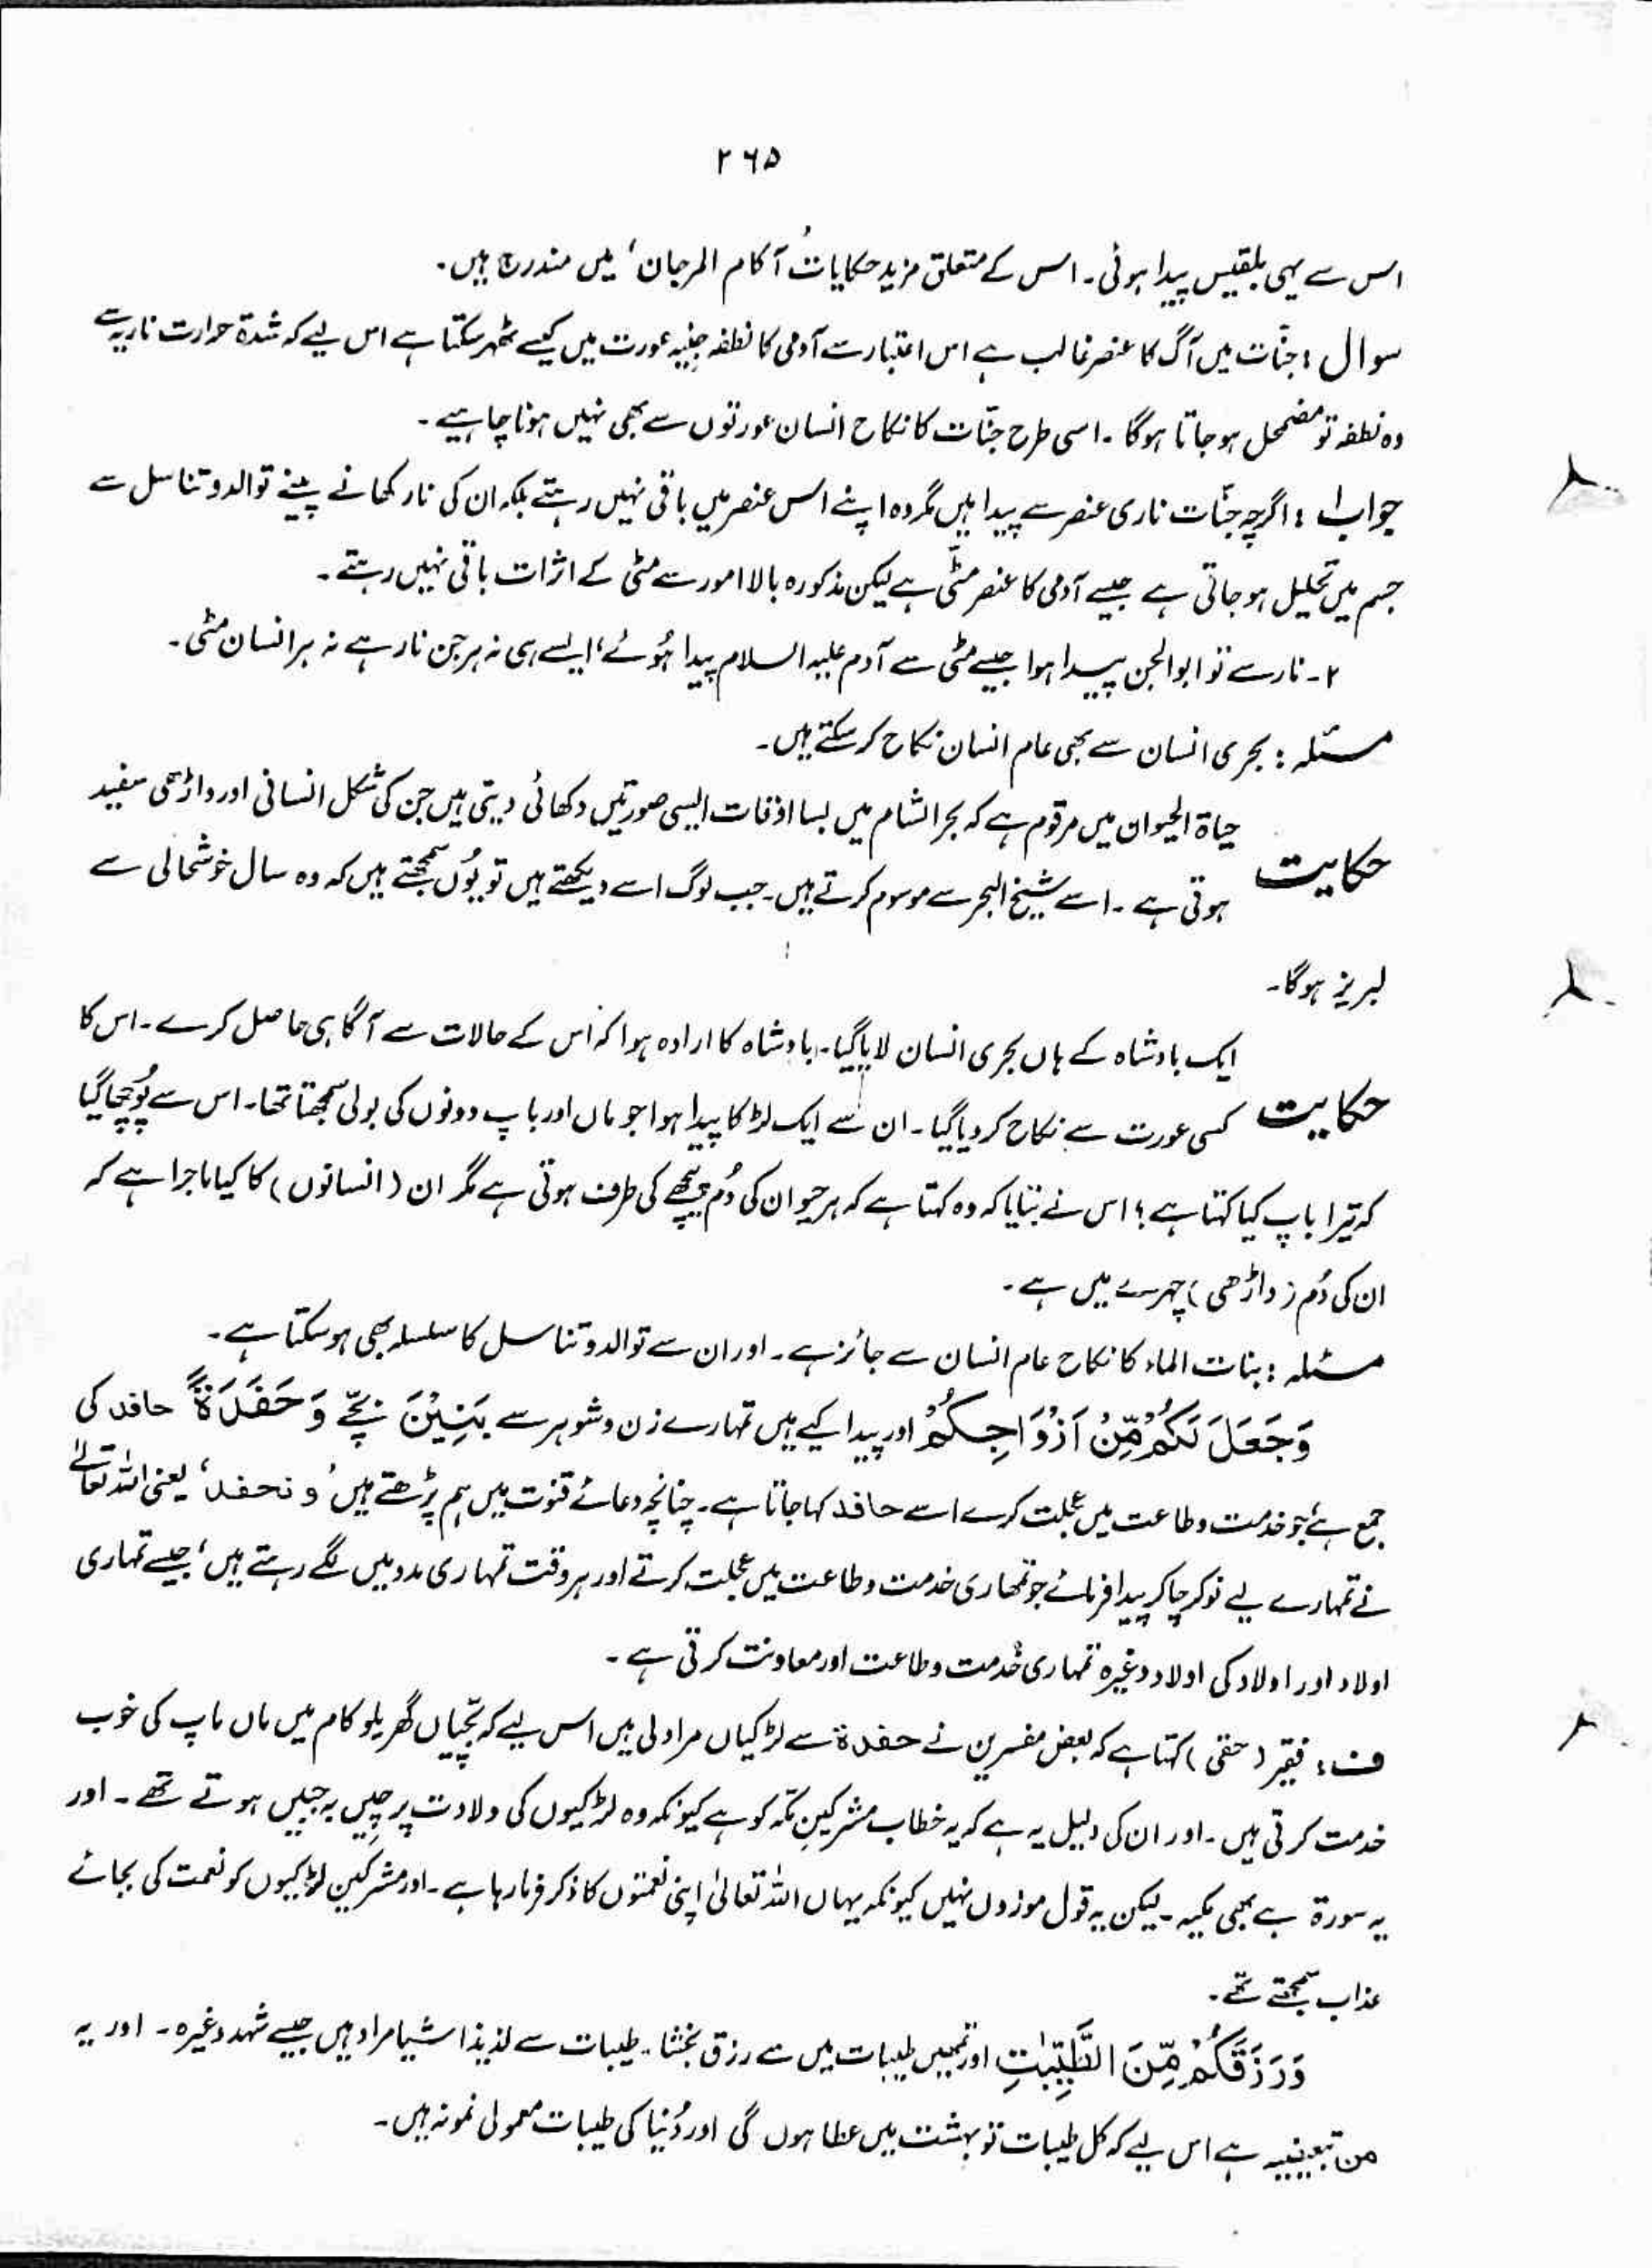 ۲۶۵
اس سے یہی بلقیس پیدا ہوئی۔ اس کے متعلق مزید حکایات 'آکام المرجان' میں مندرج ہیں۔
سوال : جنّات میں آگ کا عنصر غالب ہے اس اعتبار سے آدمی کا نطفہ جنیہ عورت میں کیسے ٹھہر سکتا ہے اس لیے کہ شدۃ حرارت ناریہ سے
وہ نطفہ تو مضمحل ہو جاتا ہوگا ۔ اسی طرح جنّات کا نکاح انسان عورتوں سے بھی نہیں ہونا چاہیے ۔
جواب ۱ : اگرچہ جنّات ناری عنصر سے پیدا ہیں مگر وہ اپنے اس عنصر میں باقی نہیں رہتے بلکہ ان کی نار کھانے پینے توالد و تناسل سے
جسم میں تحلیل ہو جاتی ہے جیسے آدمی کا عنصر مٹی ہے لیکن مذکورہ بالا امور سے مٹی کے اثرات باقی نہیں رہتے ۔
۲۔ نار سے تو ابوالجن پیدا ہوا جیسے مٹی سے آدم علیہ السلام پیدا ہُوئے، ایسے ہی نہ ہر جن نار ہے نہ ہر انسان مٹی ۔
مسئلہ : بحری انسان سے بھی عام انسان نکاح کر سکتے ہیں۔
حیاۃ الحیوان میں مرقوم ہے کہ بحر الشام میں بسا اوقات ایسی صورتیں دکھائی دیتی ہیں جن کی شکل انسانی اور داڑھی سفید
حکایت
ہوتی ہے ۔ اسے شیخ البحر سے موسوم کرتے ہیں۔ جب لوگ اسے دیکھتے ہیں تو یُوں سمجھتے ہیں کہ وہ سال خوشحالی سے
لبریز ہوگا۔
ایک بادشاہ کے ہاں بحری انسان لایا گیا۔ بادشاہ کا ارادہ ہوا کہ اُس کے حالات سے آگاہی حاصل کرے ۔ اس کا
حکایت
کسی عورت سے نکاح کر دیا گیا ۔ ان سے ایک لڑکا پیدا ہوا جو ماں اور باپ دونوں کی بولی سمجھتا تھا۔ اس سے پُوچھا گیا
کہ تیرا باپ کیا کہتا ہے ؟ اس نے بتایا کہ وہ کہتا ہے کہ ہر حیوان کی دُم پیچھے کی طرف ہوتی ہے مگر ان (انسانوں) کا کیا ماجرا ہے کہ
ان کی دُم (داڑھی) چہرے میں ہے ۔
مسئلہ : بنات الماء کا نکاح عام انسان سے جائز ہے ۔ اور ان سے توالد و تناسل کا سلسلہ بھی ہو سکتا ہے ۔
وَجَعَلَ لَكُمْ مِّنْ اَزْوَاجِكُمْ اور پیدا کیے ہیں تمہارے زن و شوہر سے بَنِيْنَ بچّے وَحَفَدَةً حافد کی
جمع ہے، جو خدمت و طاعت میں عجلت کرے اسے حافد کہا جاتا ہے ۔ چنانچہ دعائے قنوت میں ہم پڑھتے ہیں 'و نحفد' یعنی اللہ تعالیٰ
نے تمہارے لیے نوکر چاکر پیدا فرمائے جو تمھاری خدمت و طاعت میں عجلت کرتے اور ہر وقت تمہاری مدد میں لگے رہتے ہیں، جیسے تمہاری
اولاد اور اولاد کی اولاد وغیرہ تمہاری خدمت و طاعت اور معاونت کرتی ہے ۔
ف : فقیر (حقی) کہتا ہے کہ بعض مفسرین نے حفدۃ سے لڑکیاں مراد لی ہیں اس لیے کہ بچّیاں گھریلو کام میں ماں باپ کی خوب
خدمت کرتی ہیں ۔ اور ان کی دلیل یہ ہے کہ یہ خطاب مشرکینِ مکّہ کو ہے کیونکہ وہ لڑکیوں کی ولادت پر چیں بہ جبیں ہوتے تھے ۔ اور
یہ سورۃ ہے بھی مکیہ ۔ لیکن یہ قول موزوں نہیں کیونکہ یہاں اللہ تعالیٰ اپنی نعمتوں کا ذکر فرما رہا ہے ۔ اور مشرکین لڑکیوں کو نعمت کی بجائے
عذاب سمجھتے تھے ۔
وَرَزَقَكُمْ مِّنَ الطَّيِّبٰتِ اور تمہیں طیبات میں سے رزق بخشا ۔ طیبات سے لذیذ اشیا مراد ہیں جیسے شہد وغیرہ ۔ اور یہ
من تبعیضیہ ہے اس لیے کہ کل طیبات تو بہشت میں عطا ہوں گی اور دُنیا کی طیبات معمولی نمونہ ہیں ۔